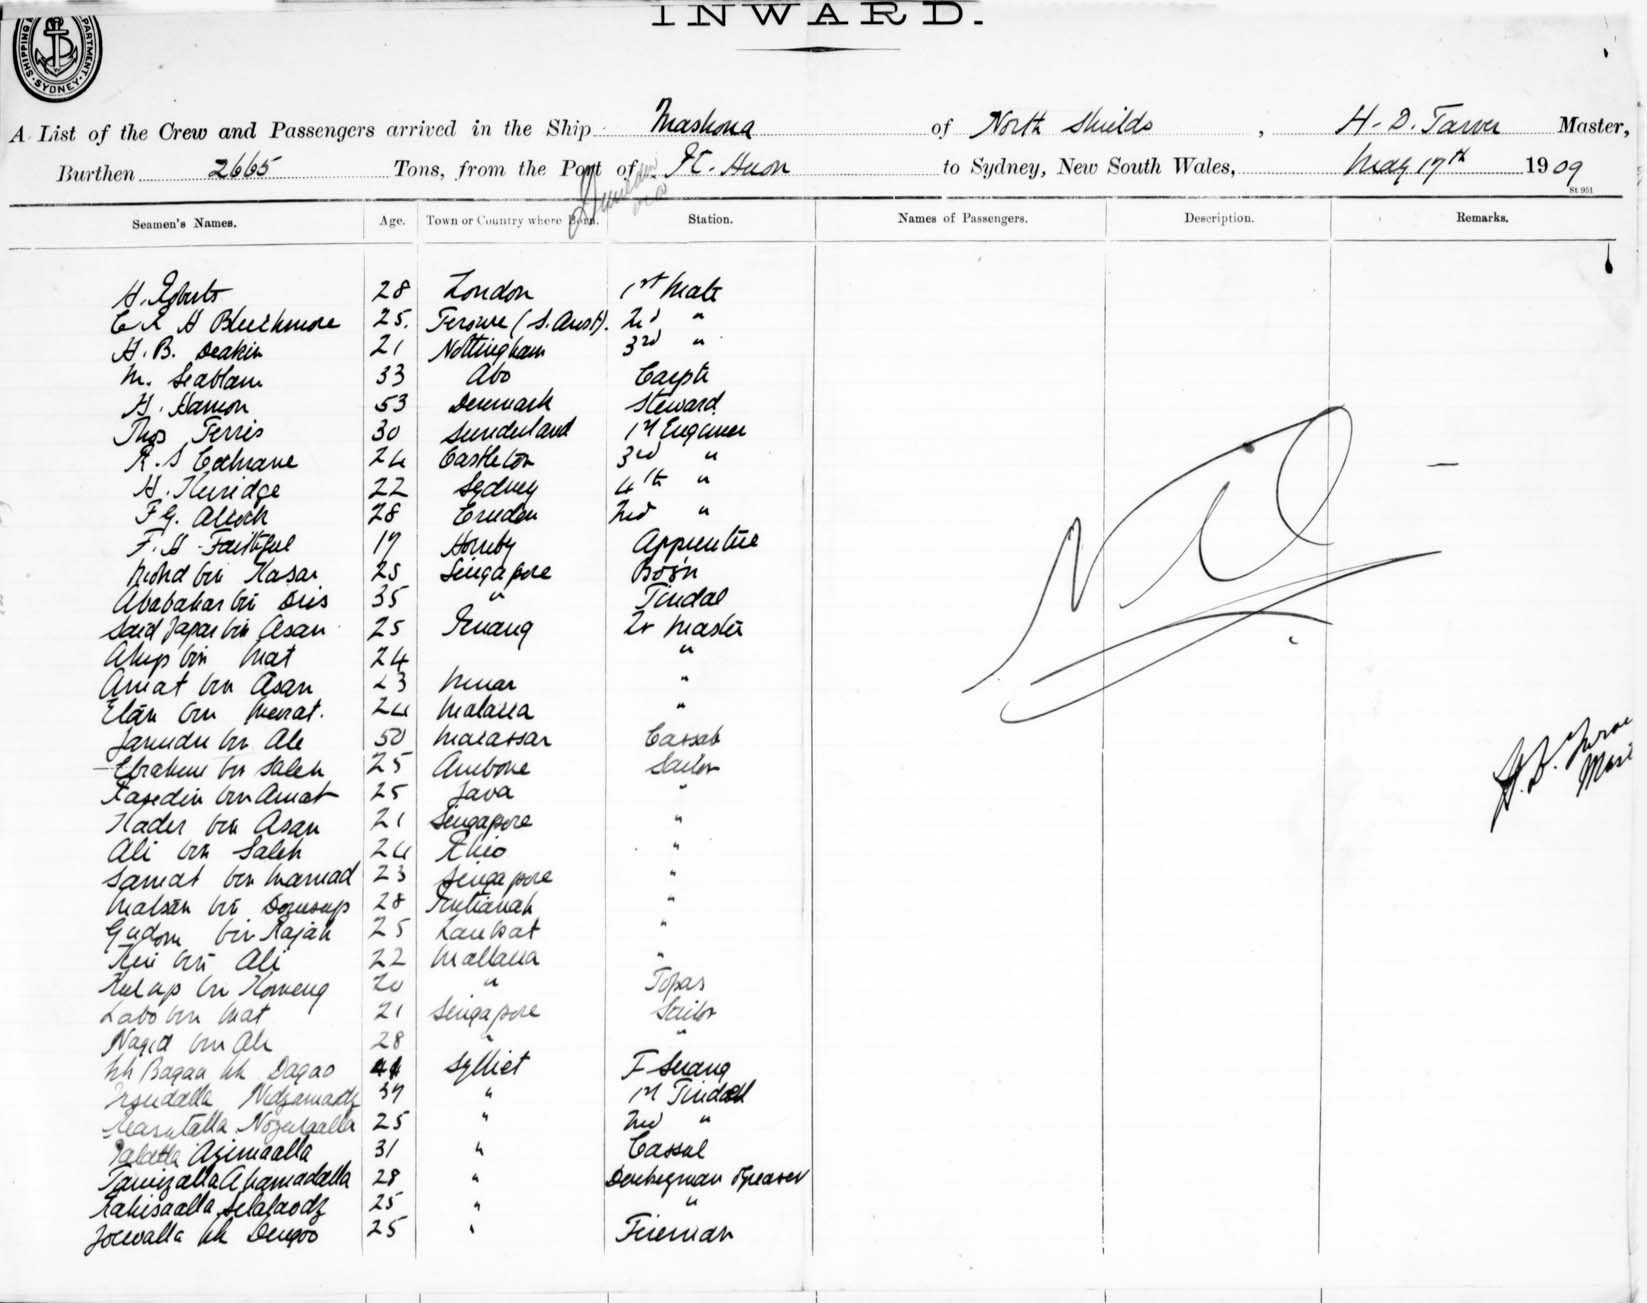 INWARD.
SHIPPING DEPARTMENT. SYDNEY.
A List of the Crew and Passengers arrived in the Ship Mashona of North Shields, H. D. Tarver Master,
Burthen 2665 Tons, from the Port of Pt. Huon to Sydney, New South Wales, May 17th 1909
St 951
Seamen's Names. Age. Town or Country where Born. Station. Names of Passengers. Description. Remarks.
H. Roberts 28 London 1st Mate
H Bleechmore 25. Terowie (S. Aust). 2nd "
H. B. Deakin 21 Nottingham 3rd "
M. Seablam 33 Abo Carptr
H. Hanson 53 Denmark Steward
Thos Ferris 30 Sunderland 1st Engineer
R. S Cochrane 24 Castleton 3rd "
H. Kerridge 22 Sydney 4th "
F G. Alcock 28 2nd "
F. H Faithful 17 Hornby Apprentice
Mohd bin Kasar 25 Singapore Bosn
Ababakar bin Dris 35 " Tindal
Said Japar bin Asan 25 Penang Qr Master
Akip bin Mat 24 "
Amat bin Asan 23 Muar "
Elan bin 24 Malacca "
bin Ali 50 Macassar Cassab
Ebrahim bin Saleh 25 Ambone Sailor
Kasedin bin Amat 25 Java "
Kader bin Asan 21 Singapore "
Ali bin Saleh 24 Rhio "
Samat bin Mamad 23 Singapore "
Matsan bin 28 Pontianak "
bin Rajah 25 "
bin Ali 22 Mallacca "
Kulup bin Komeng 20 " Topas
Labo bin Mat 21 Singapore Sailor
Nagid bin Ali 28 " "
Bagaa Dagao Sylhet F Serang
37 " 1st Tindal
25 " 2nd "
Azimaalla 31 " Cassal
Tamizalla Ahamadalla 28 " Donkeyman Greaser
25 " "
25 " Fireman
Nil
H. D. Tarver